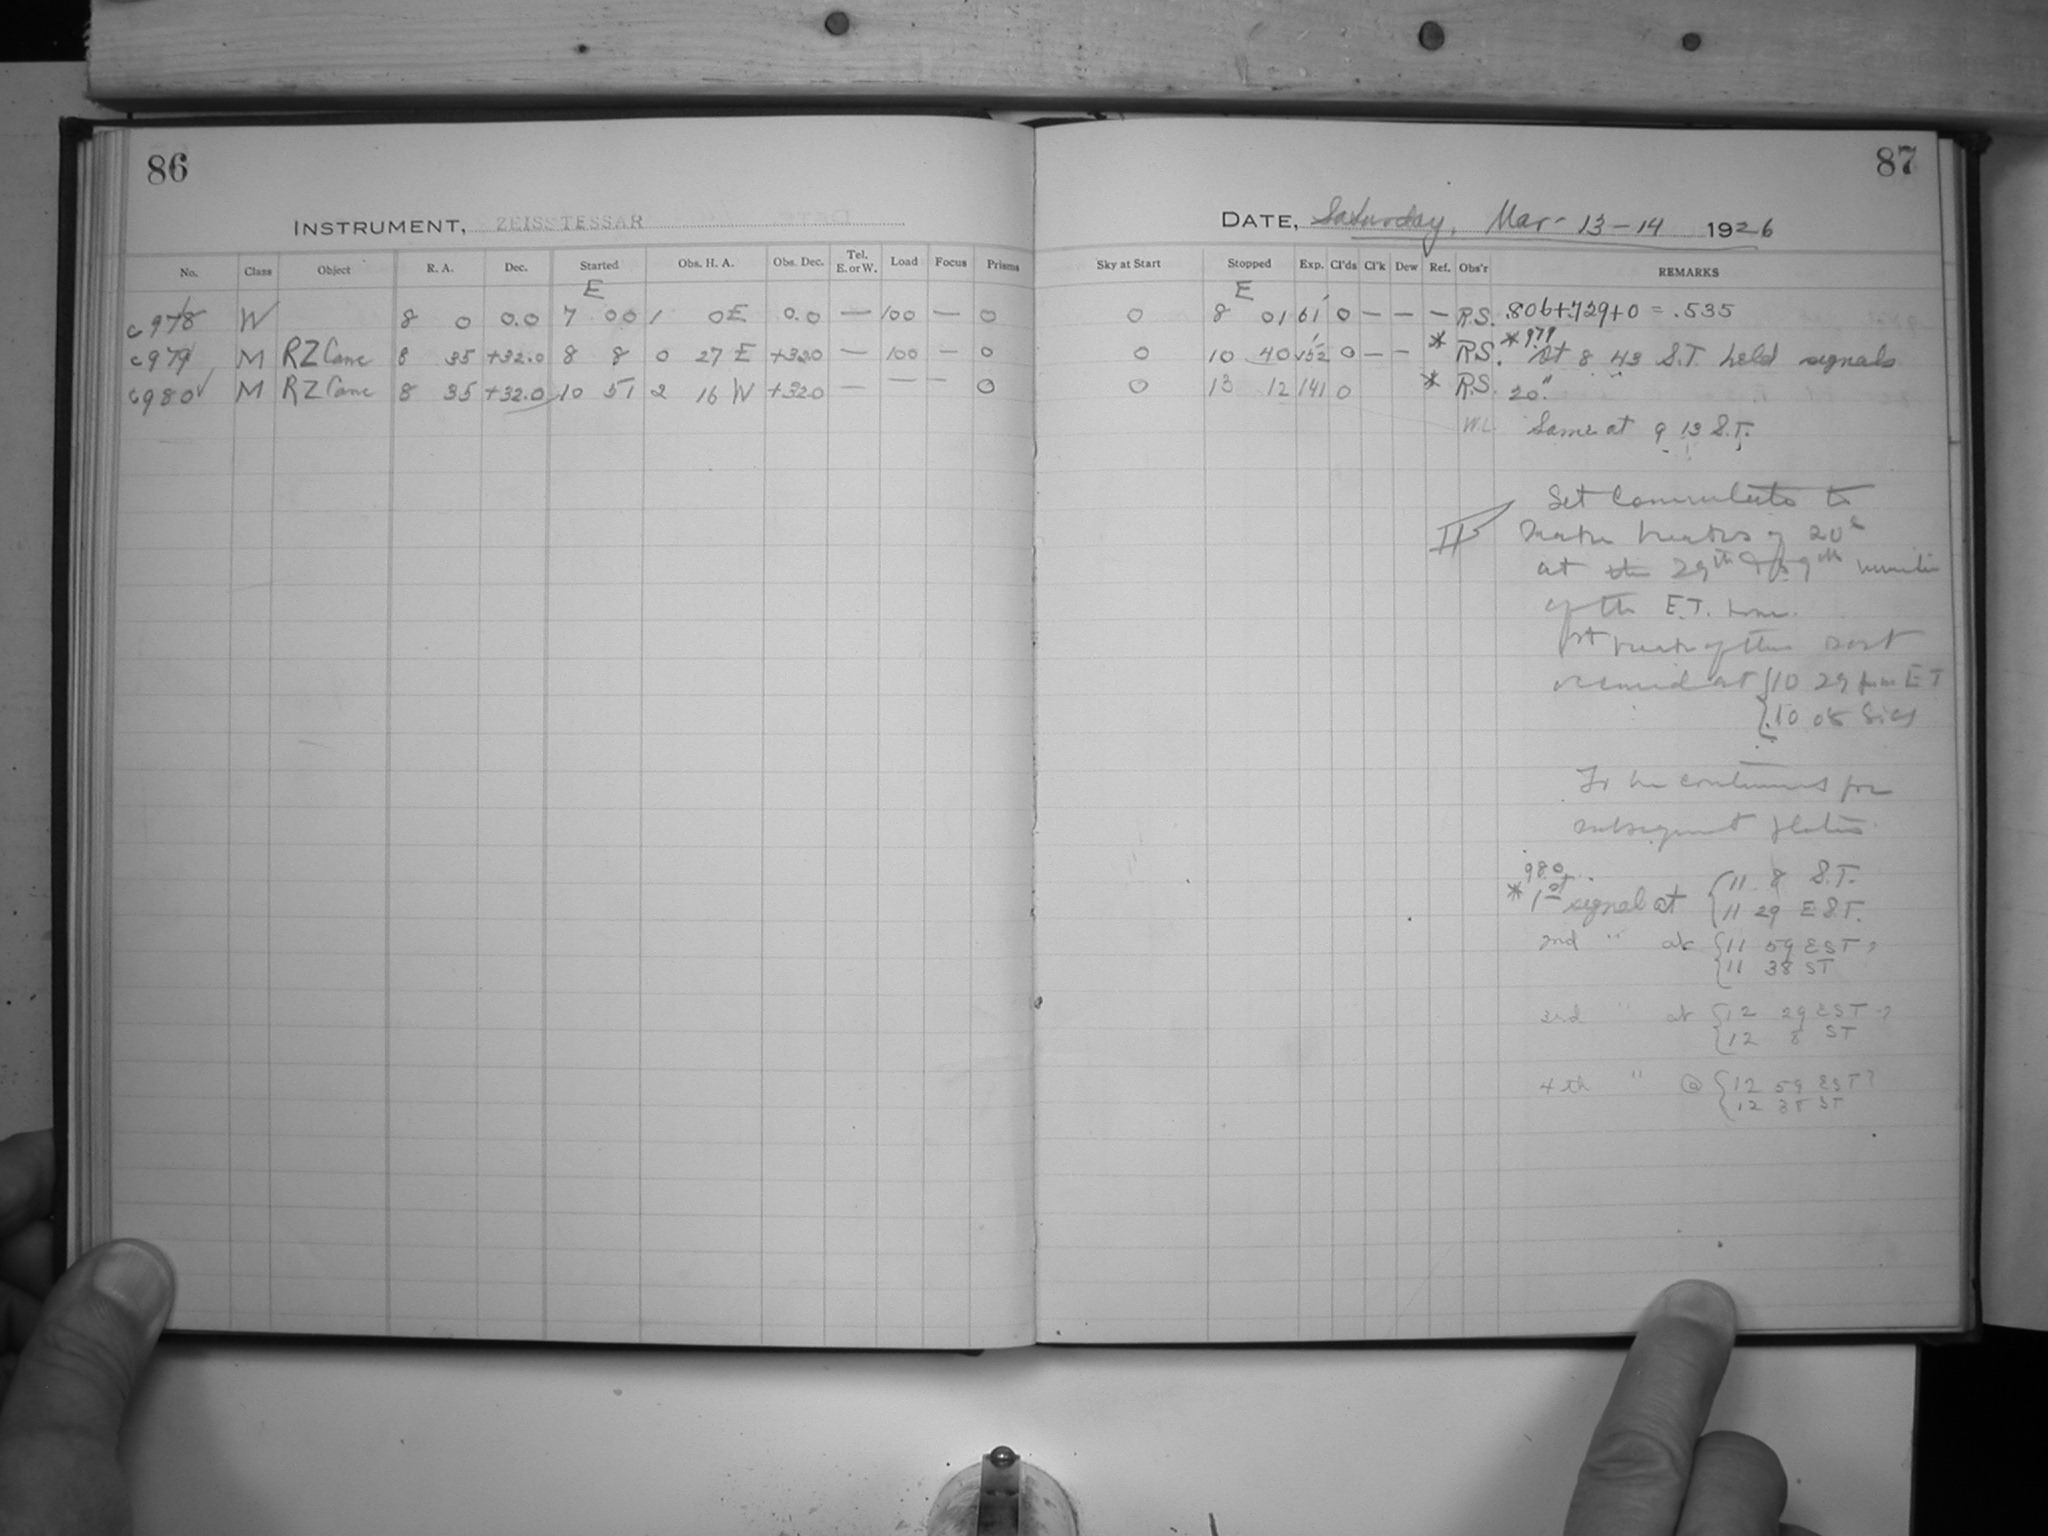 86
INSTRUMENT, ZEISS TESSAR
No. Class Object R. A. Dec. Started Obs. H. A. Obs. Dec. Tel. E. or W. Load Focus Prisms
E
c978 W 8 0 0.0 7 00 1 0E 0.0 — 100 — 0
c979 M RZ Canc 8 35 +32.0 8 8 0 27 E +32.0 — 100 — 0
c980 M RZ Canc 8 35 +32.0 10 51 2 16 W +32.0 — — — 0
87
DATE, Saturday, Mar- 13-14 1926
Sky at Start Stopped Exp. Cl'ds Cl'k Dew Ref. Obs'r REMARKS
E
0 8 01 61 0 — — — R.S. .806+.729+0 = .535
0 10 40 152 0 — — * R.S. *979 At 8 43 S.T. held signals
0 13 12 141 0 * R.S. 20"
W.L. Same at 9 13 S.T.
Set
of 20s
at the 29th & 59th
of the E.T.
1st of this sort
at 10 29 pm E T
10 08 Sid
To be continued for
subsequent plates
980
* 1st signal at 11 8 S.T.
11 29 E.S.T.
2nd " at 11 59 EST,
11 38 ST
3rd " at 12 29 EST,
12 8 ST
4th " @ 12 59 EST
12 38 ST